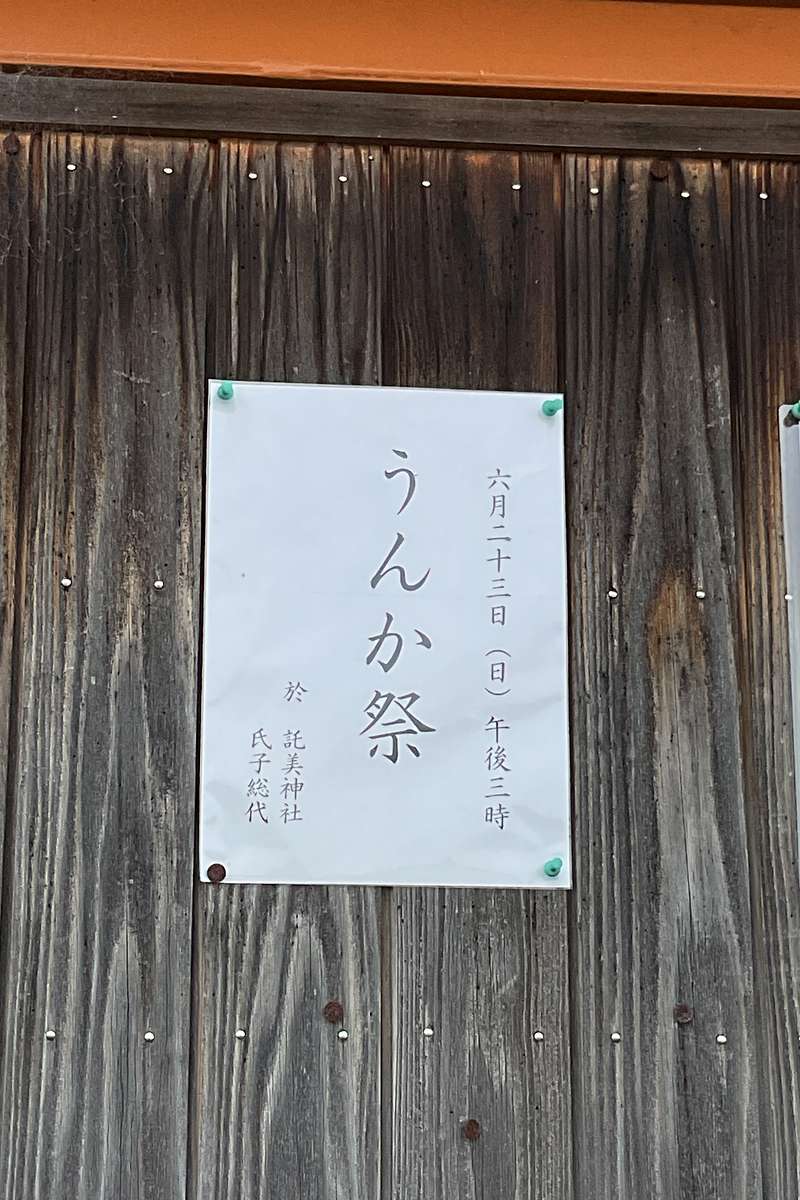 六月二十三日（日）午後三時
うんか祭
於　託美神社
氏子総代